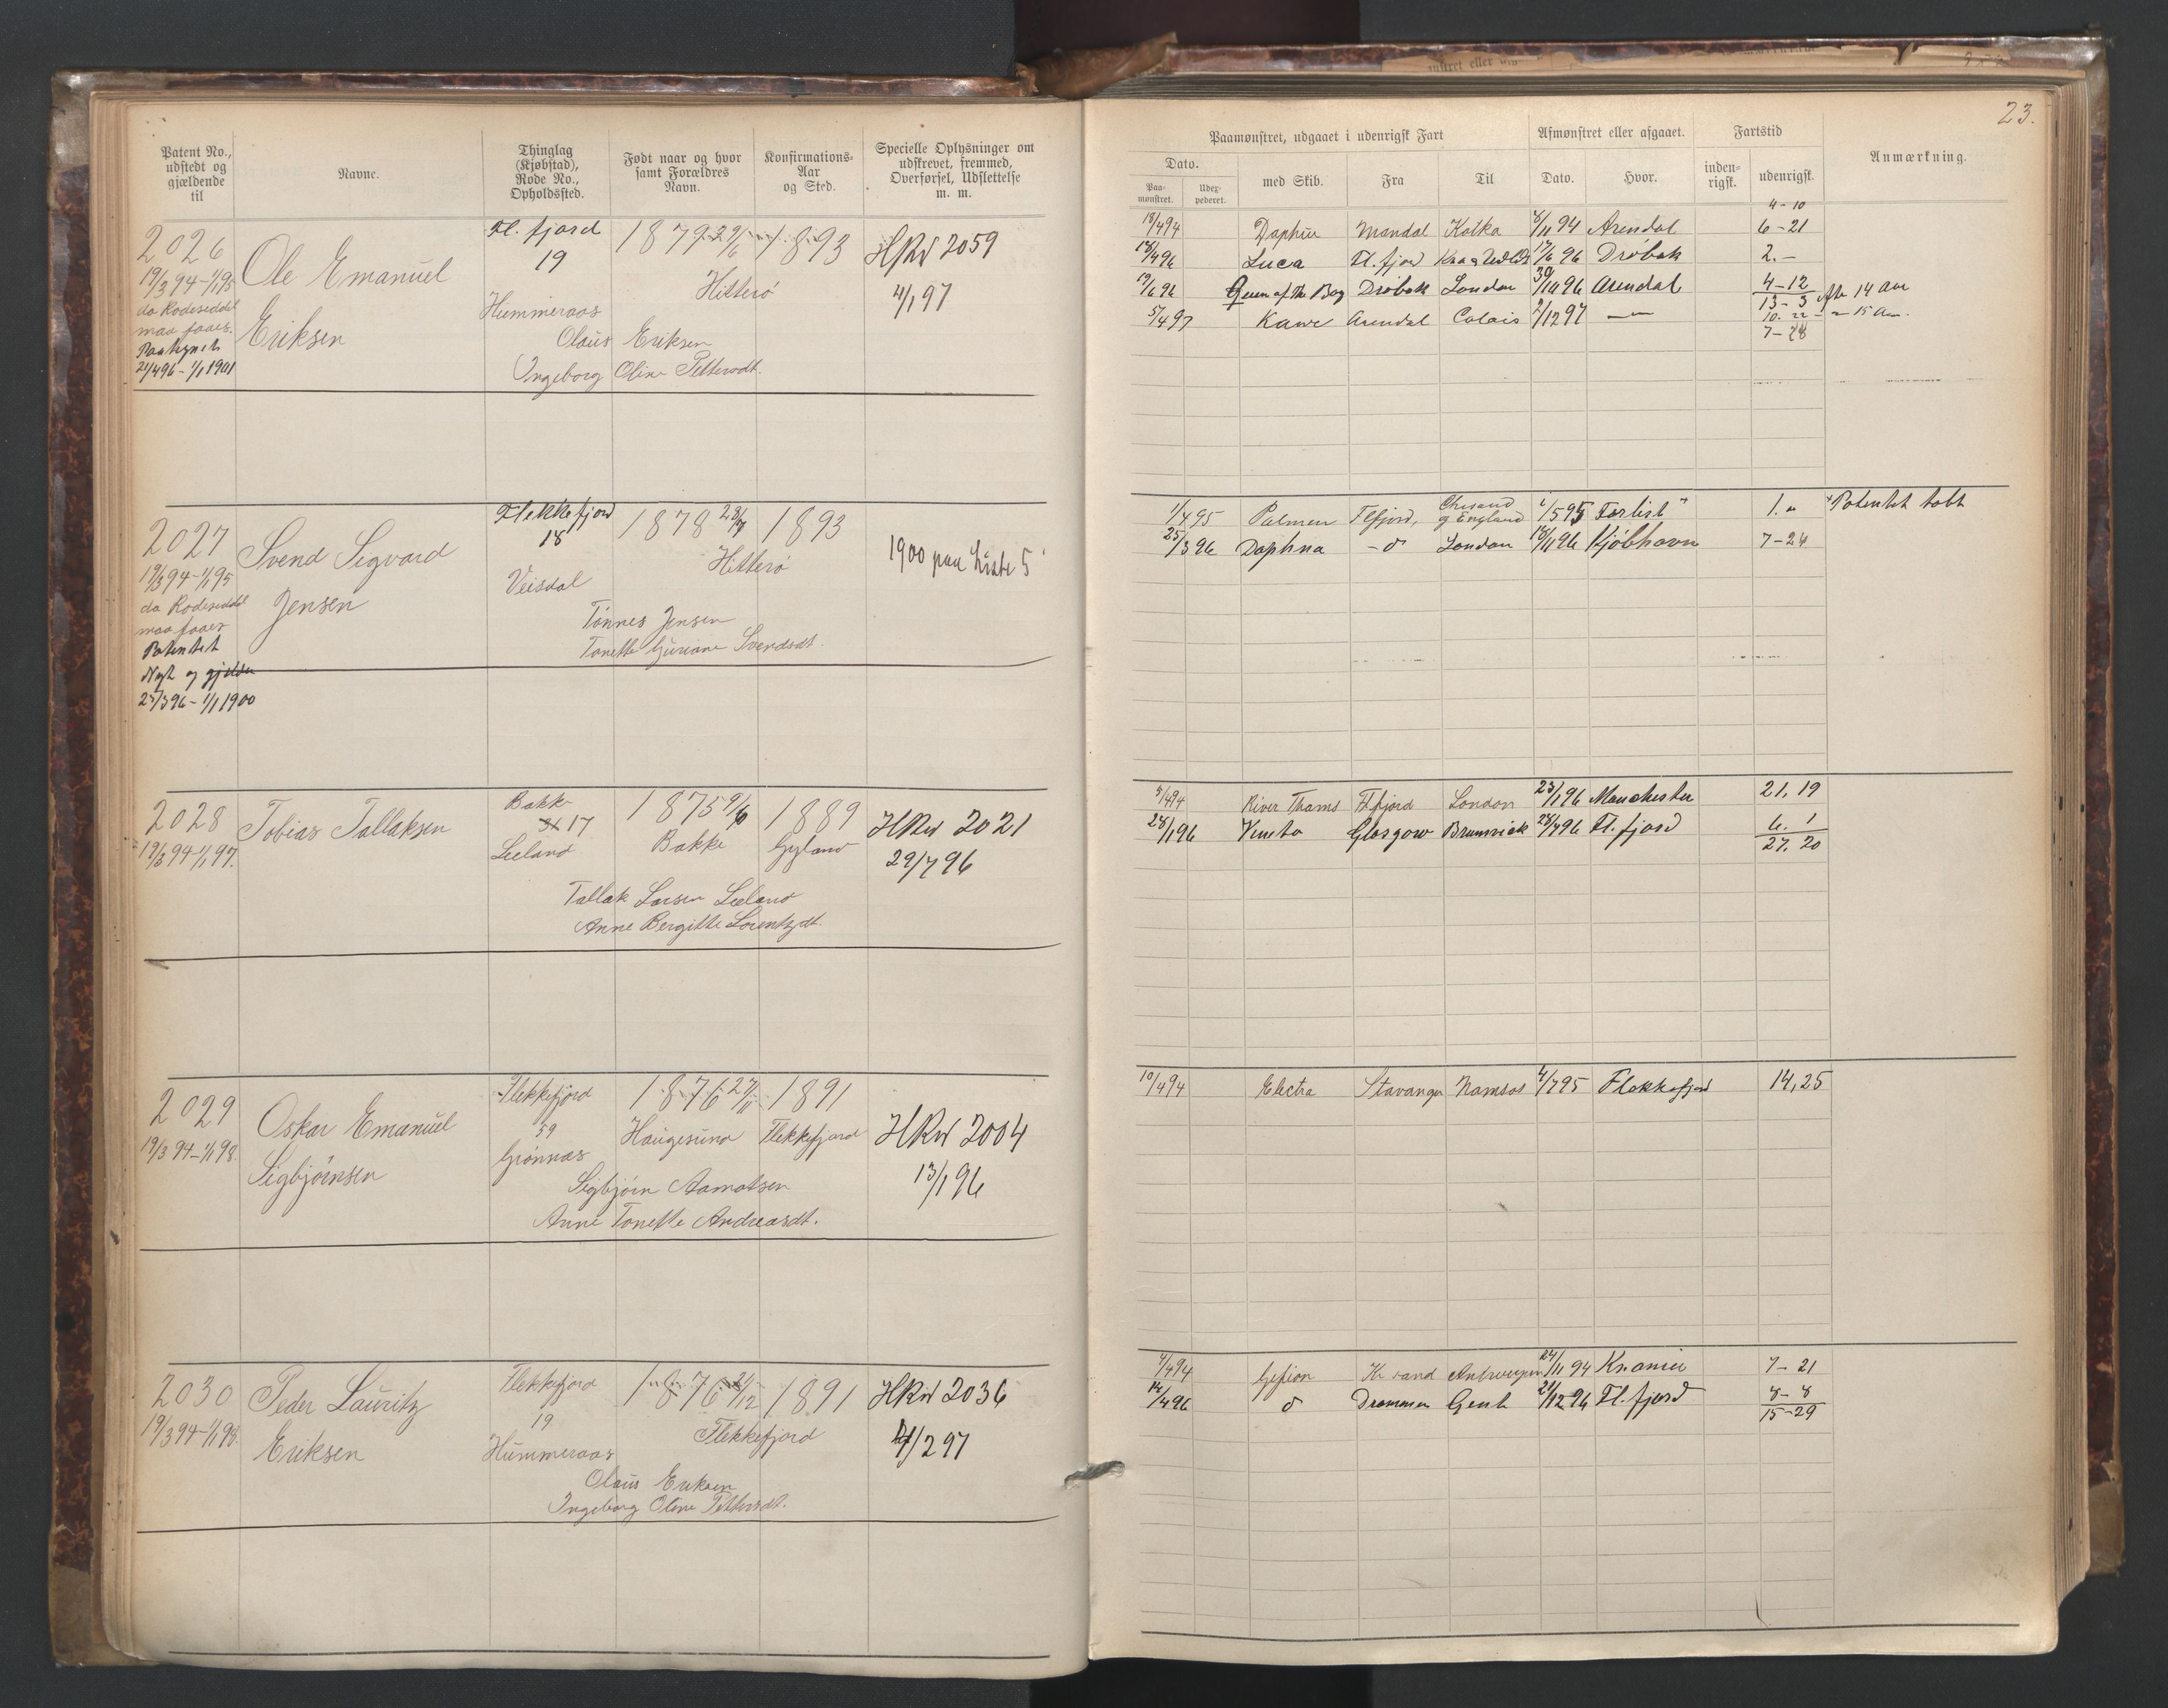 23.
Patent No., udstedt og gjældende til
Navne.
Thinglag (Kjøbstad), Rode No., Opholdssted.
Født naar og hvor samt Forældres Navn.
Konfirmations-Aar og Sted.
Specielle Oplysninger om udskrevet, fremmed, Overførsel, Udslettelse m. m.
Paamønstret, udgaaet i udenrigsk Fart
Afmønstret eller afgaaet.
Fartstid
Anmærkning.
Dato.
Paa-mønstret.
Udex-pederet.
med Skib.
Fra
Til
Dato.
Hvor.
inden-rigsk.
udenrigsk.
2026
19/3 94-1/1 95
da Rodeseddel
maa faaes.
21/4 96 - 1/1 1901
Ole Emanuel
Eriksen
Fl. fjord
19
Hummeraas
1879 29/6
Hitterö
1893
Olaus Eriksen
Ingeborg Oline Pettersdt.
HRW 2059
4/1 97
4-10
18/4 94 Mandal Kotka 8/11 94 Arendal 6-21
18/4 96 Luca Fl. fjord 17/6 96 Dröbak 2.-
19/6 96 Queen of the Bay Dröbak London 30/11 96 Arendal 4-12
13-3
14 Aar
5/4 97 Arendal Calais 2/12 97 10. 22
15 Aar.
7-28
2027
19/3 94-1/1 95
da Rodeseddel
maa faaes
Patentet
Nyt og gjelder
25/3 96 - 1/1 1900
Svend Sigvard
Jensen
Flekkefjord
18
Veisdal
1878 28/7
Hitterö
1893
Tönnes Jensen
Tonette Guriane Svendsdt.
1900 paa Liste 5
1/4 95 Palmen Flfjord, og England 1/5 95 Forlist + 1. „ + Patentet tabt
25/3 96 Daphna London 18/11 96 Kjöbhavn 7-24
2028
19/3 94-1/1 97.
Tobias Tallaksen
Bakke
17
Leeland
1875 9/6
Bakke
1889
Gyland
Tallak Larsen Leeland
Anne Bergitte Lorentzdt.
HRW 2021
29/7 96
5/4 94 River Thams Flfjord London 23/1 96 Manchester 21, 19
28/1 96 Glasgow Brunsvick 28/7 96 Fl. fjord 6. 1
27. 20
2029
19/3 94-1/1 98.
Oskar Emanuel
Sigbjörnsen
Flekkefjord
59
Grönnas
1876 27/11
Haugesund
1891
Flekkefjord
Sigbjörn Aamotsen
Anne Tonette Andreasdt.
HRW 2004
13/1 96
10/4 94 Electra Stavanger Namsos 4/7 95 Flekkefjord 14, 25
2030
19/3 94-1/1 98.
Peder Lauritz
Eriksen
Flekkefjord
19
Hummeraas
1876
Flekkefjord
1891
Olaus Eriksen
Ingeborg Oline Pettersdt.
HRW 2036
4/2 97
4/4 94 Gefion Kr sand Antwerpen 24/11 94 Kr.ania 7-21
14/4 96 Drammen Gent 21/12 96 Fl. fjord 8-8
15-29